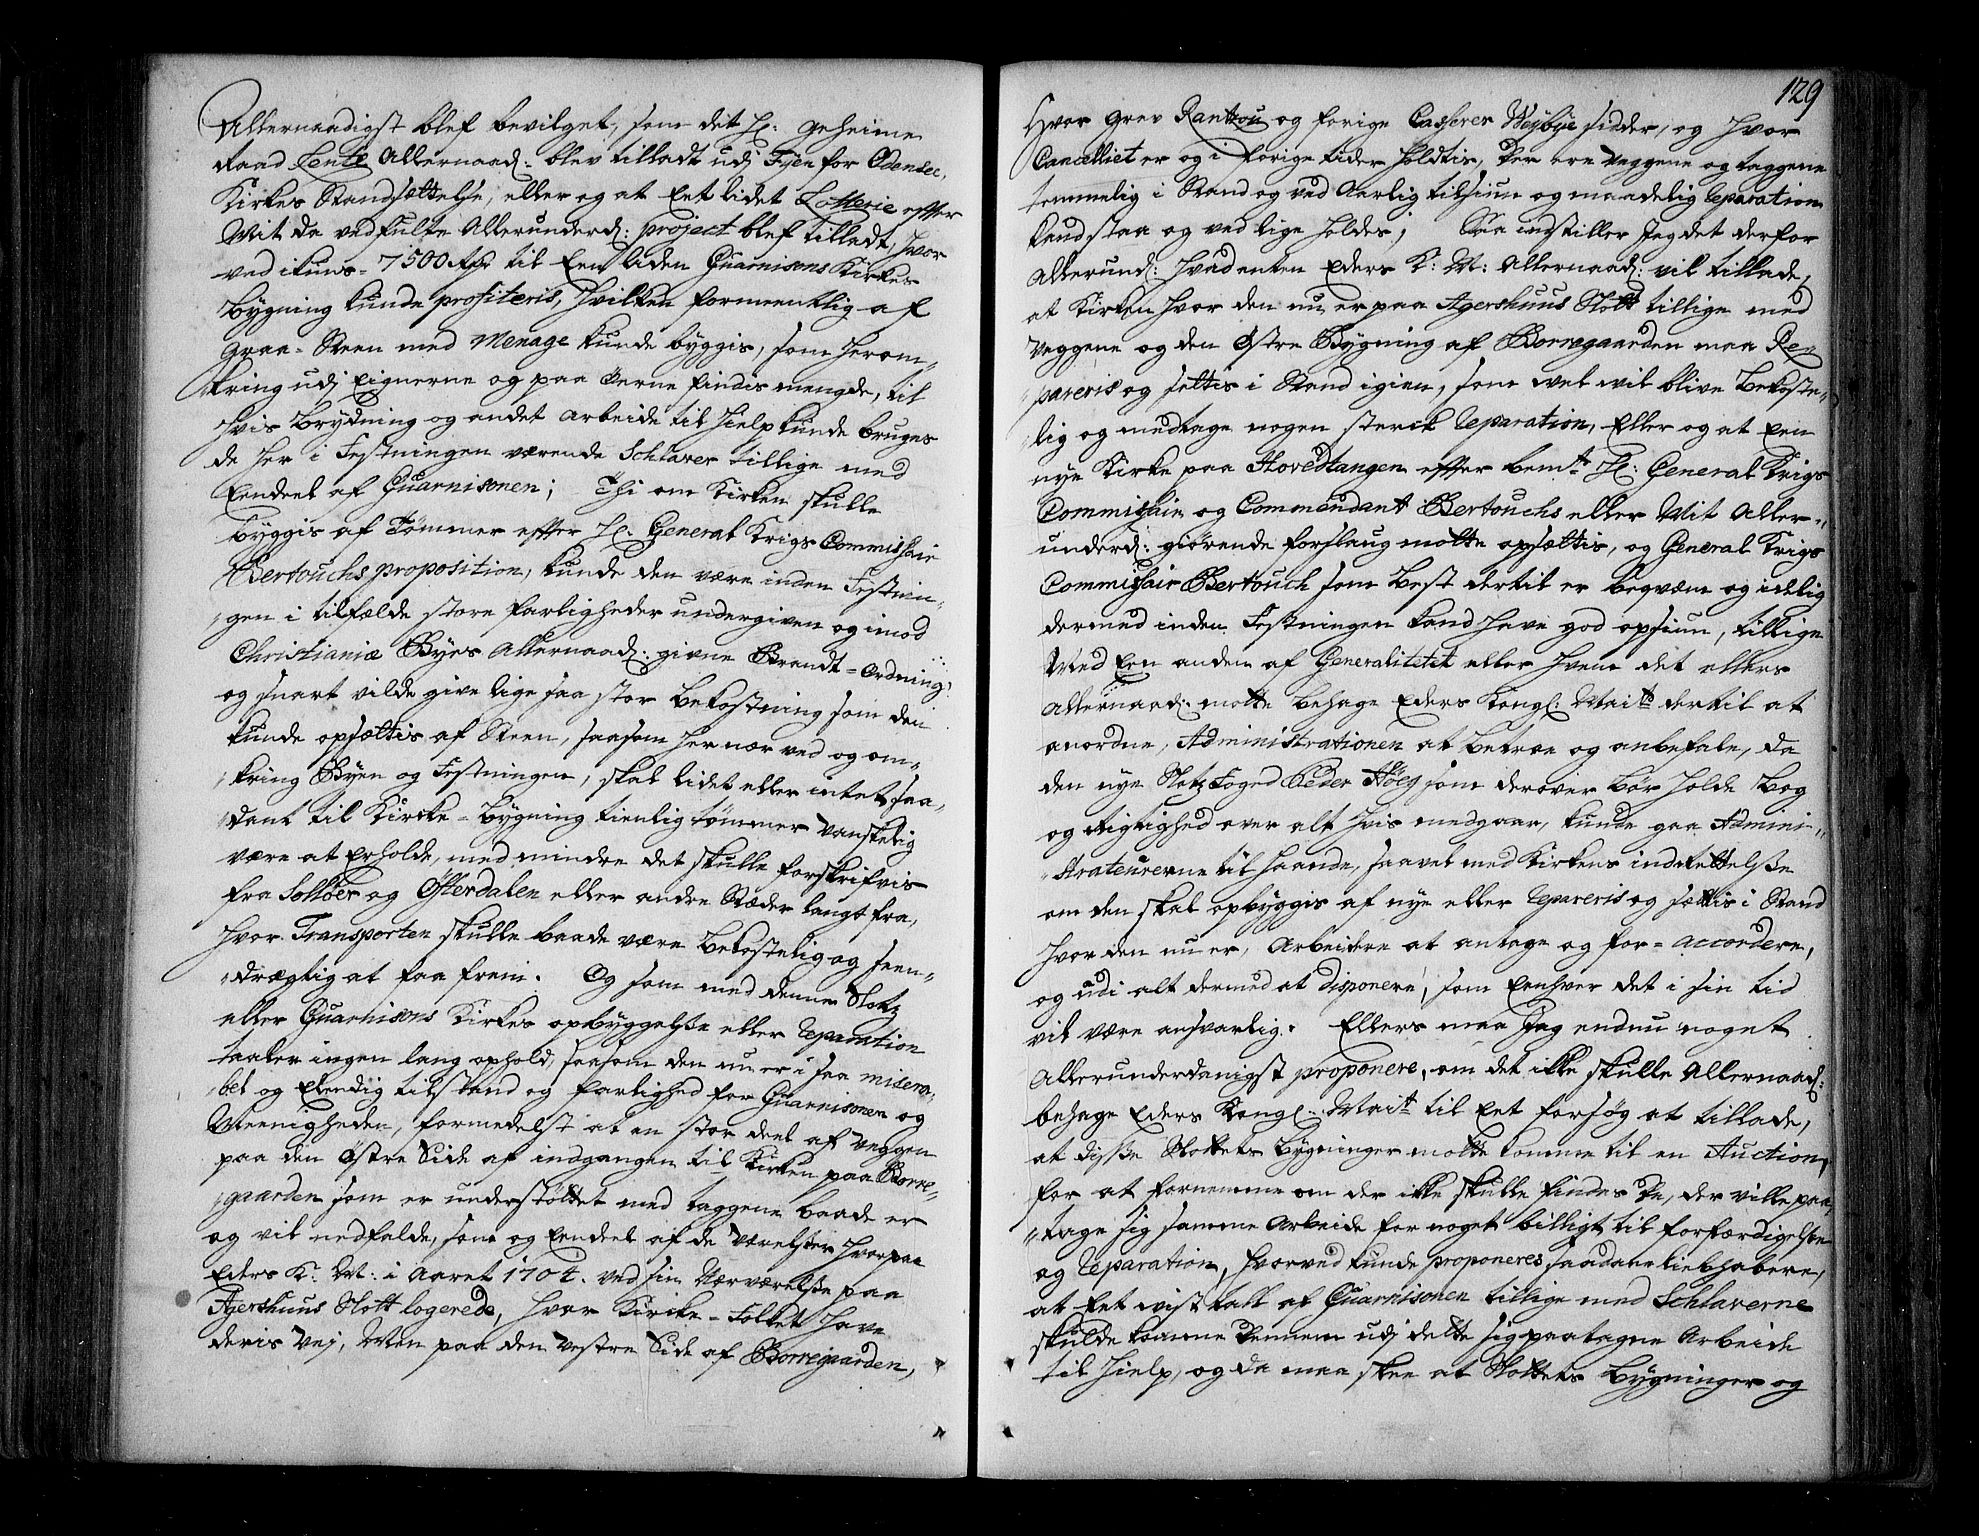 Allernaadigst blef bevilget, som det H: Geheime
Raad Lente Allernaad: blev tilladt udj Fyen for Odensee,
Kirkes Standsættelse, eller og at Eet lidet Lotterie effter
Mit da vedfulte Allerunderd: project blef tilladt, hvor
ved ikuns = 7500 Rdr til Een liden Guarnisons Kirkes
bygning kunde profiteris, hvilken formeentlig af
Graa = Steen med Menage kunde byggis, som herom„
„kring udj Eignerne og paa Øerne findis mengde, til
hvis brydning og andet arbeide til hielp kunde bruges
de her i Festningen værende Schlaver tillige med
Eendeel af Guarnisonen; Thi om Kirken skulle
byggis af Tømmer effter H: General Krigs Commissair
Bertouchs proposition, kunde den være inden Festnin„
„gen i tilfælde store farligheder undergiven og imod
Christianiæ Byes Allernaad: givne Brandt = Ordning:
og snart vilde give lige saa stor bekostning som den
kunde opsættis af Steen, saasom her nær ved og om„
„kring Byen og Festningen, skal lidet eller intet saa„
„dant til Kircke = bygning tienlig tømmer vanskelig
være at Erholde, med mindre det skulle forskrifvis
fra Solløer og Østerdalen eller andre Stæder langt fra,
hvor Transporten skulle baade være bekostelig og seen„
„drægtig at faa frem. Og som med denne Slotz
eller Guarnisons Kirkes opbyggelse eller Reparation
taaler ingen lang ophold, saasom den nu er i saa misera„
„bel og Elendig tilstand og farlighed for Guarnisonen og
Meenigheden, formedelst at en stor deel af Veggen
paa den Østre Side af indgangen til Kirken paa Borre„
„gaarden som er understøttet med taggene baade er
og vil nedfalde, som og Eendeel af de værelser hvorpaa
Eders K: M: i Aaret 1704. ved sin Nærværelse paa
Agershuus Slott logerede, hvor Kircke = Folket have
deris Vej, Men paa den Vestre Side af Borregaarden,
129
Hvor Grev Rantzou og forige Casserer Weybye sidder, og hvor
Cancelliet er og i forige tider holdtis, der ere Veggene og taggene
temmelig i Stand og ved Aarlig tilsiun og maadelig Reparation
kand staa og ved lige holdes; Saa indstiller Jeg det derfor
Allerund: hvad enten Eders K: M: Allernaad: vil tillade,
at Kirken hvor den nu er paa Agershuus Slott tillige med
Veggene og den Østre Bygning af Borregaarden maa Re„
„pareris og settis i Stand igien, som vel vil blive bekoste„
„lig og medtage nogen sterck Reparation, Eller og at Een
nye Kirke paa Hovedtangen effter bem:te H: General Krigs
Commissair og Commendant Bertouchs eller Mit Aller„
underd: giørende forslaug motte opsættis, og General Krigs
Commissair Bertouch som best dertil er beqvæm og idelig
dermed inden Festningen kand have god opsiun, tillige
Med Een anden af Generalitetet eller hvem det ellers
Allernaad: motte behage Eders Kongl: Mait: dertil at
anordne, Administrationen at betroe og anbefale, da
den nye Slotz Foged Peder Höeg som derover bør holde bog
og Rigtighed over alt hvis medgaar, kunde gaa Admini„
„stratеurerne til haande, saavel med Kirkens indrettelse
om den skal opbyggis af nye eller Repareris og sættis i Stand
hvor den nu er, Arbeidere at antage og for = accordere,
og udi alt dermed at disponere, som Eenhver det i sin tid
vil være ansvarlig. Ellers maa Jeg endnu noget
Allerunderdanigst proponere, om det ikke skulle Allernaad:
behage Eders Kongl: Mait: til Eet forsøg at tillade,
at disse Slottets bygninger motte komme til en Auction,
for at fornemme om der ikke skulle findes De, der ville paa„
„tage sig samme arbeide for noget billigt til forfærdigelse
og Reparation, hvorved kunde proponeres saadane liebhabere,
at Eet vist tall af Guarnisonen tillige med Schlaverne
skulde komme Dennem udj dette sig paatagne Arbeide
til hielp, og da maa skee at Slottets bygninger og